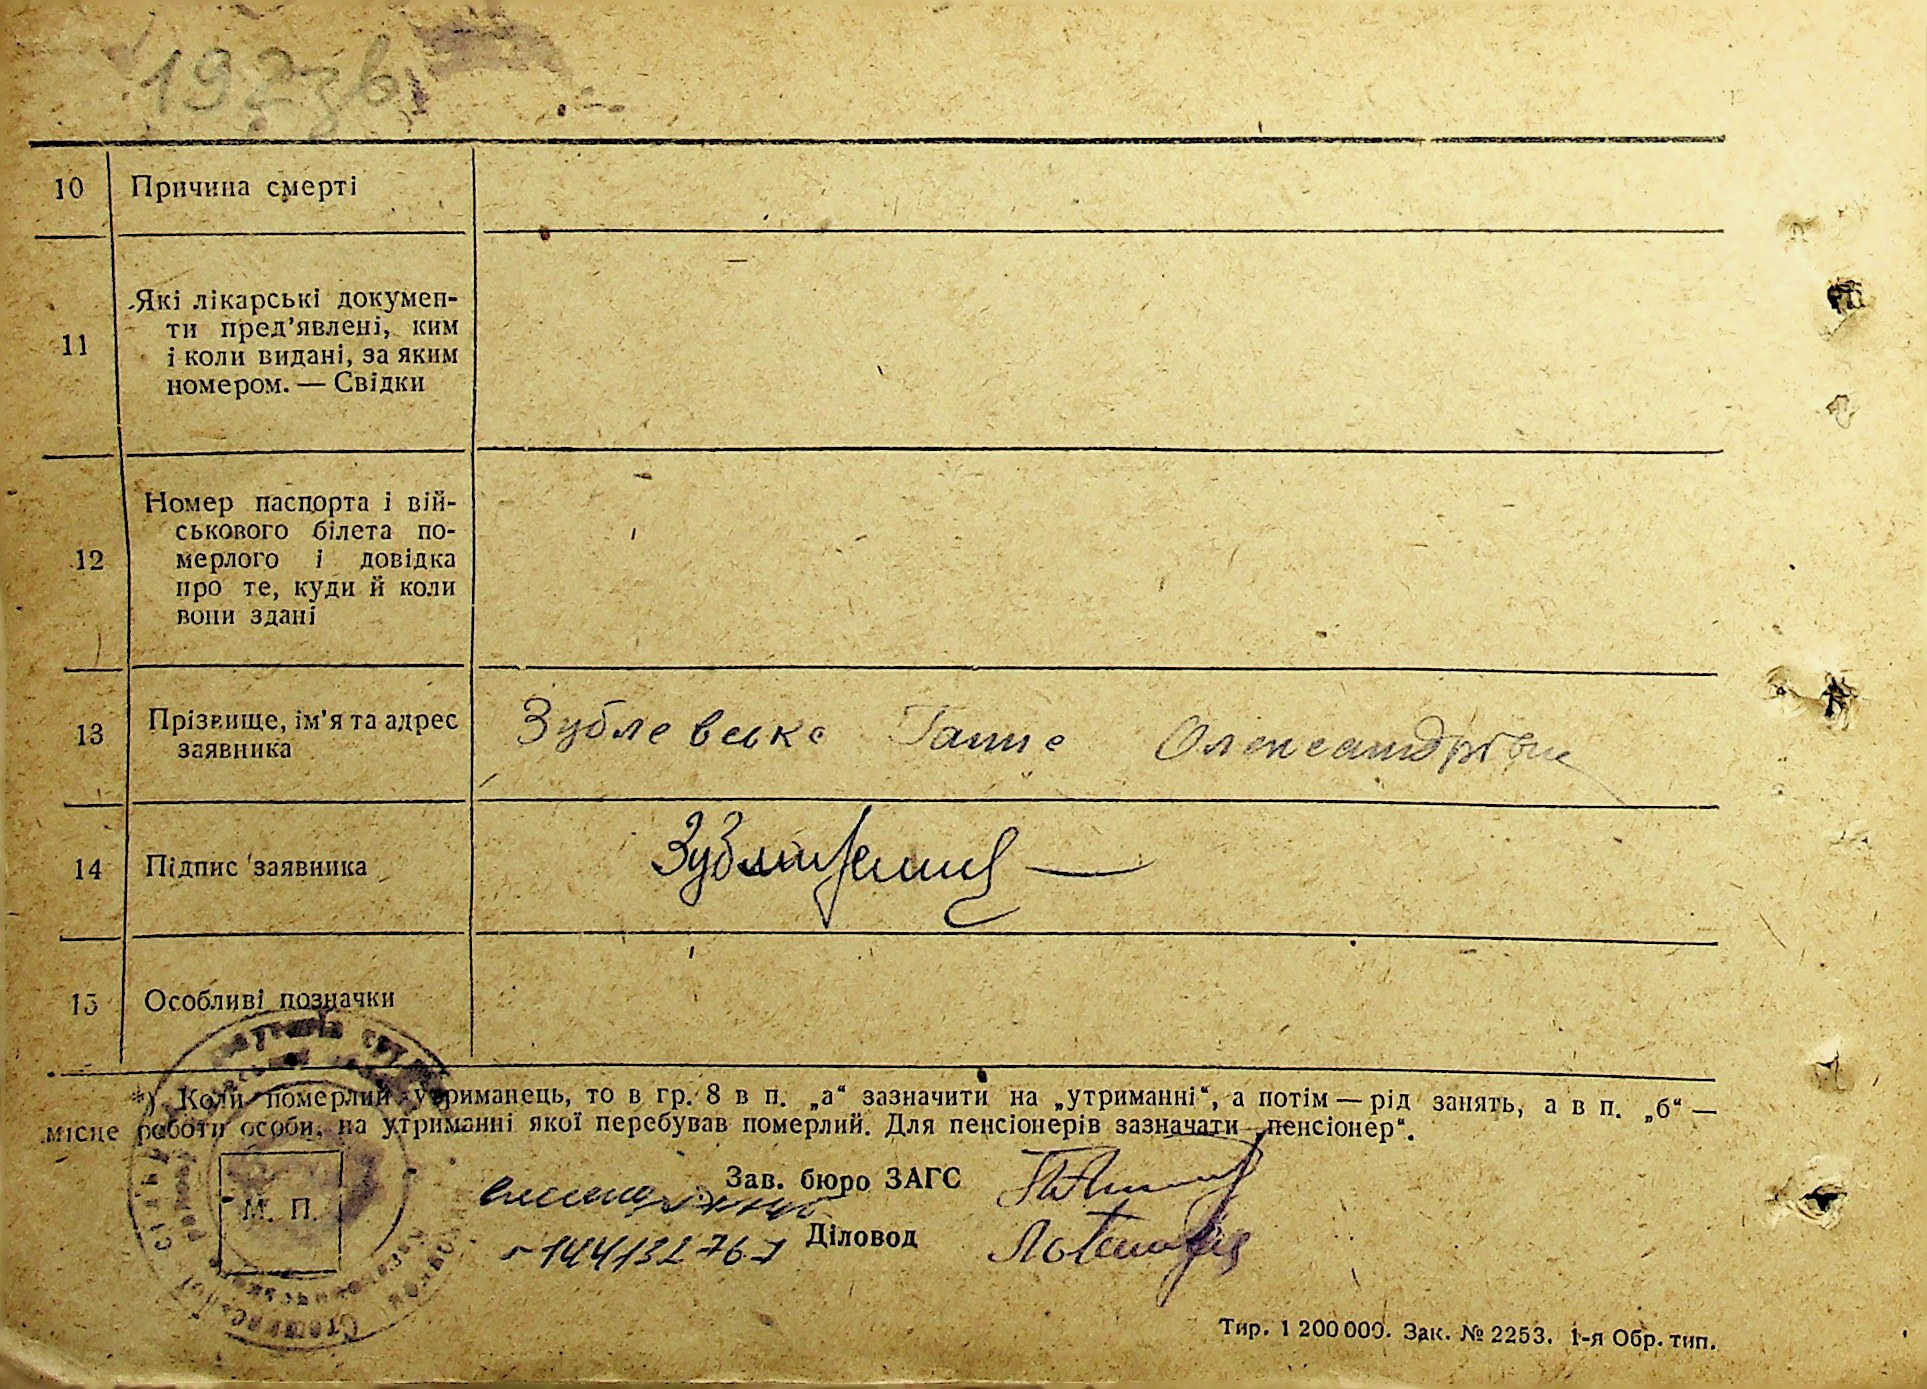 10 Причина смерті
11 Які лікарські докумен-
ти пред'явлені, ким
і коли видані, за яким
номером. — Свідки
12 Номер паспорта і вій-
ськового білета по-
мерлого і довідка
про те, куди й коли
вони здані
13 Прізвище, ім'я та адрес
заявника
Зублевська Ганна Олександрівна
14 Підпис заявника
15 Особливі позначки
*) Коли померлий утриманець, то в гр. 8 в п. „а“ зазначити на „утриманні“, а потім — рід занять, а в п. „б“ —
місце роботи особи, на утриманні якої перебував померлий. Для пенсіонерів зазначати „пенсіонер“.
М. П.
Зав. бюро ЗАГС
Діловод
Тир. 1 200 000. Зак. № 2253. 1-я Обр. тип.